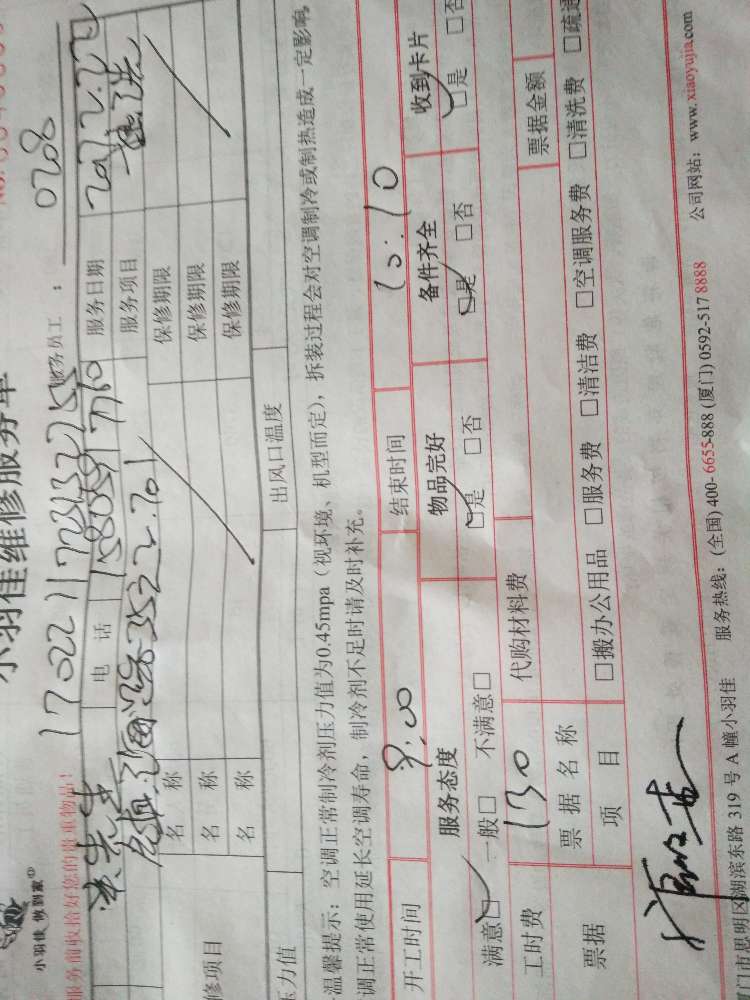 小羽佳维修服务单
小羽佳 恢到家
170221172313275
服务员工：0208
服务前收拾好您的贵重物品！
电 话
服务日期 2017.2.22
服务项目
修项目 名 称 保修期限
名 称 保修期限
名 称 保修期限
压力值 出风口温度
温馨提示：空调正常制冷剂压力值为0.45mpa（视环境、机型而定），拆装过程会对空调制冷或制热造成一定影响，
调正常使用延长空调寿命，制冷剂不足时请及时补充。
开工时间 9:00 结束时间 10:10
服务态度 物品完好 备件齐全 收到卡片
满意□ 一般□ 不满意□ □是 □否 □是 □否 □是 □否
工时费 130 代购材料费 票据金额
票据 票 据 名 称
项 目 □搬办公用品 □服务费 □清洁费 □空调服务费 □清洗费 □疏通
门市思明区湖滨东路 319 号 A 幢小羽佳 服务热线：(全国) 400-6655-888 (厦门) 0592-517 8888 公司网站：www.xiaoyujia.com